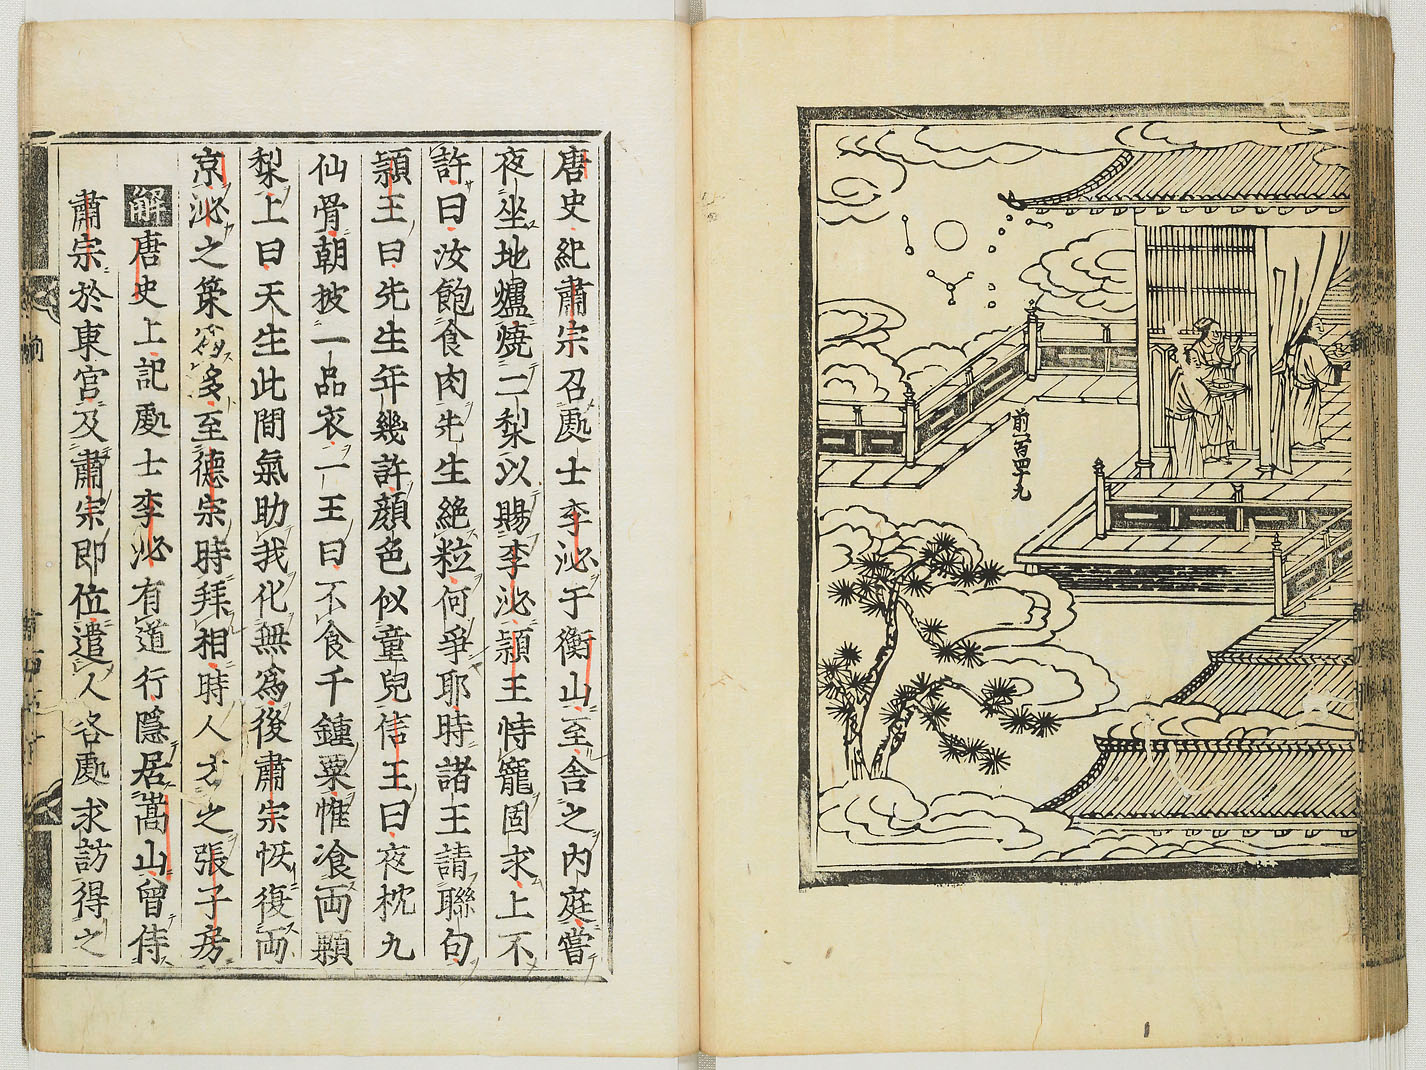 前百四十九
唐史紀肅宗召處士李泌于衡山至舍之内庭嘗
夜坐地爐燒二梨以賜李泌頴王恃寵固求上不
許曰汝飽食肉先生絕粒何爭耶時諸王請聯句
頴王曰先生年幾許顔色似童兒信王曰夜枕九
仙骨朝披一品衣一王曰不食千鍾粟惟飡両顆
梨上曰天生此間氣助我化無爲後肅宗恢復両
京泌之策多至德宗時拜相時人方之張子房
解唐史上記處士李泌有道行隱居嵩山曾侍
肅宗於東宮及肅宗即位遣人各處求訪得之